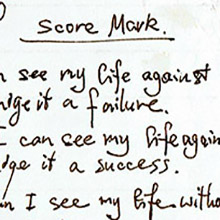 Score Mark.
n see my life against
dge it a failure.
I can see my life again
dge it a success.
n I see my life witho